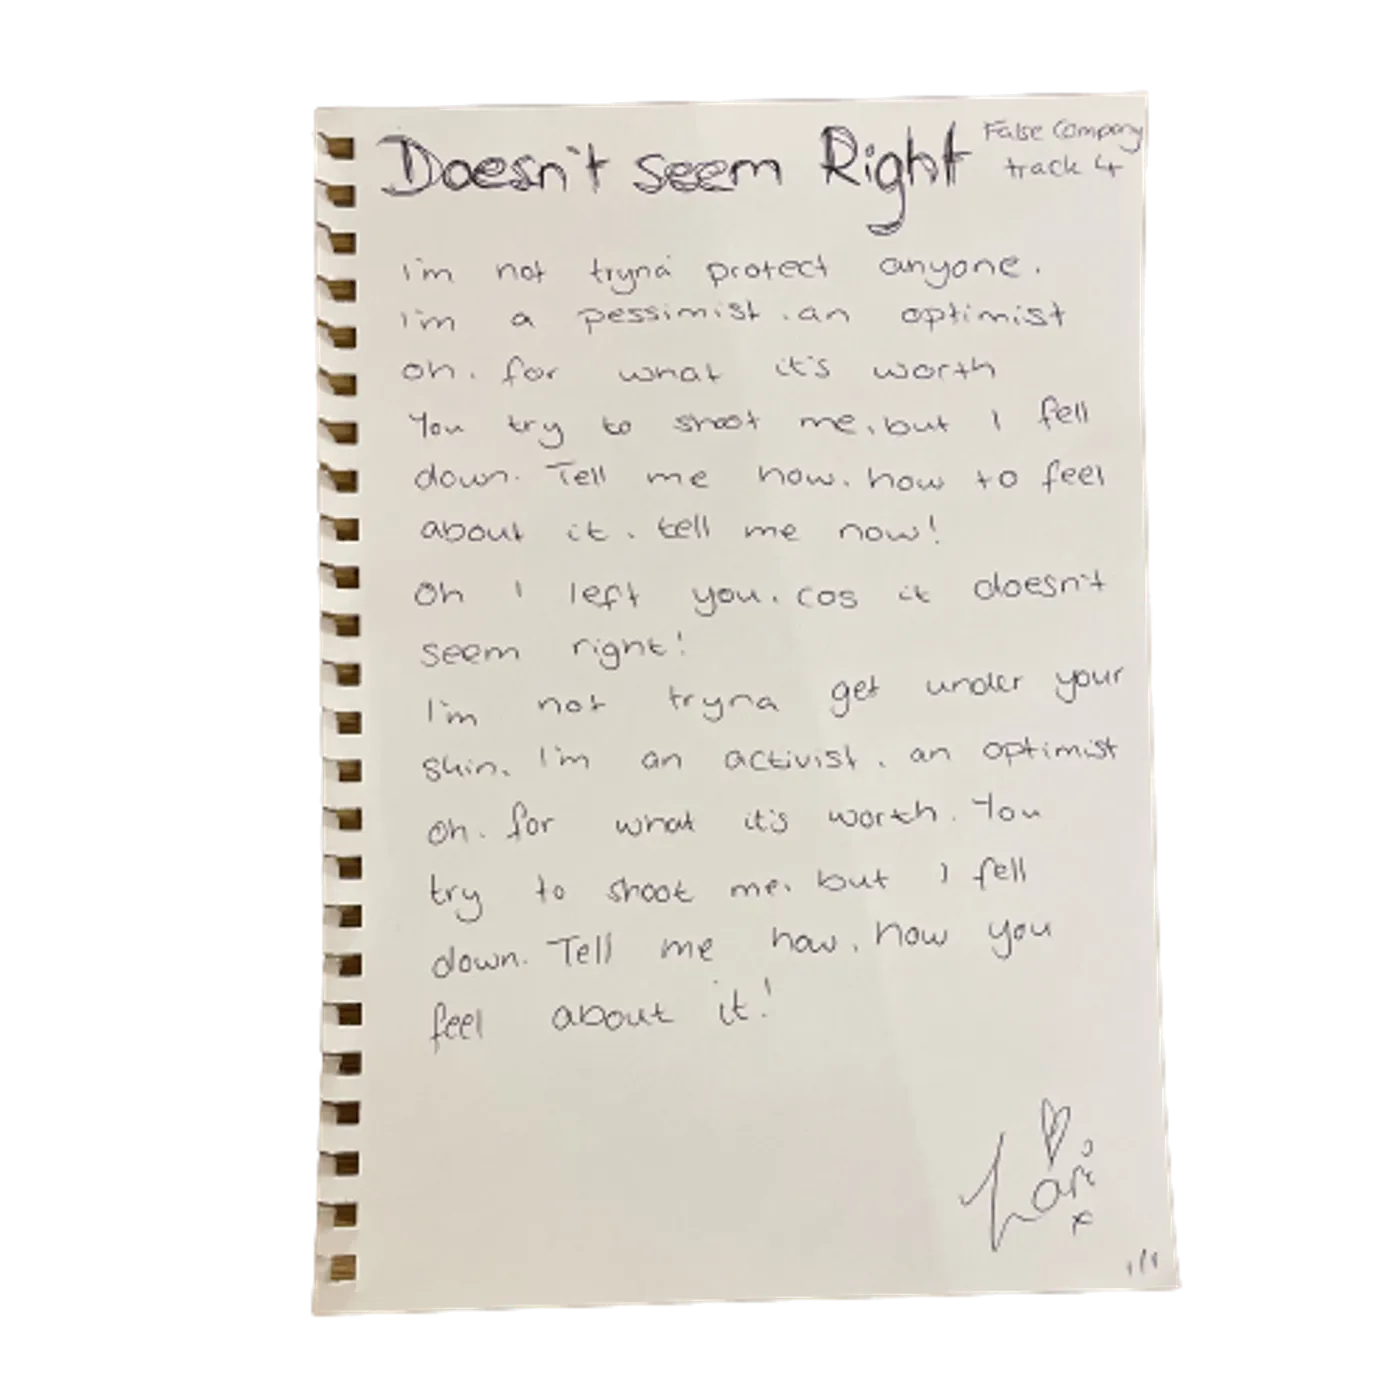 Doesn't seem Right
False Company
track 4
I'm not tryna protect anyone.
I'm a pessimist. an optimist
oh. for what it's worth
You try to shoot me, but I fell
down. Tell me how. how to feel
about it. tell me now!
Oh I left you. cos it doesn't
seem right!
I'm not tryna get under your
skin. I'm an activist. an optimist
oh. for what it's worth. You
try to shoot me. but I fell
down. Tell me how. how you
feel about it!
Lari
x
1/1